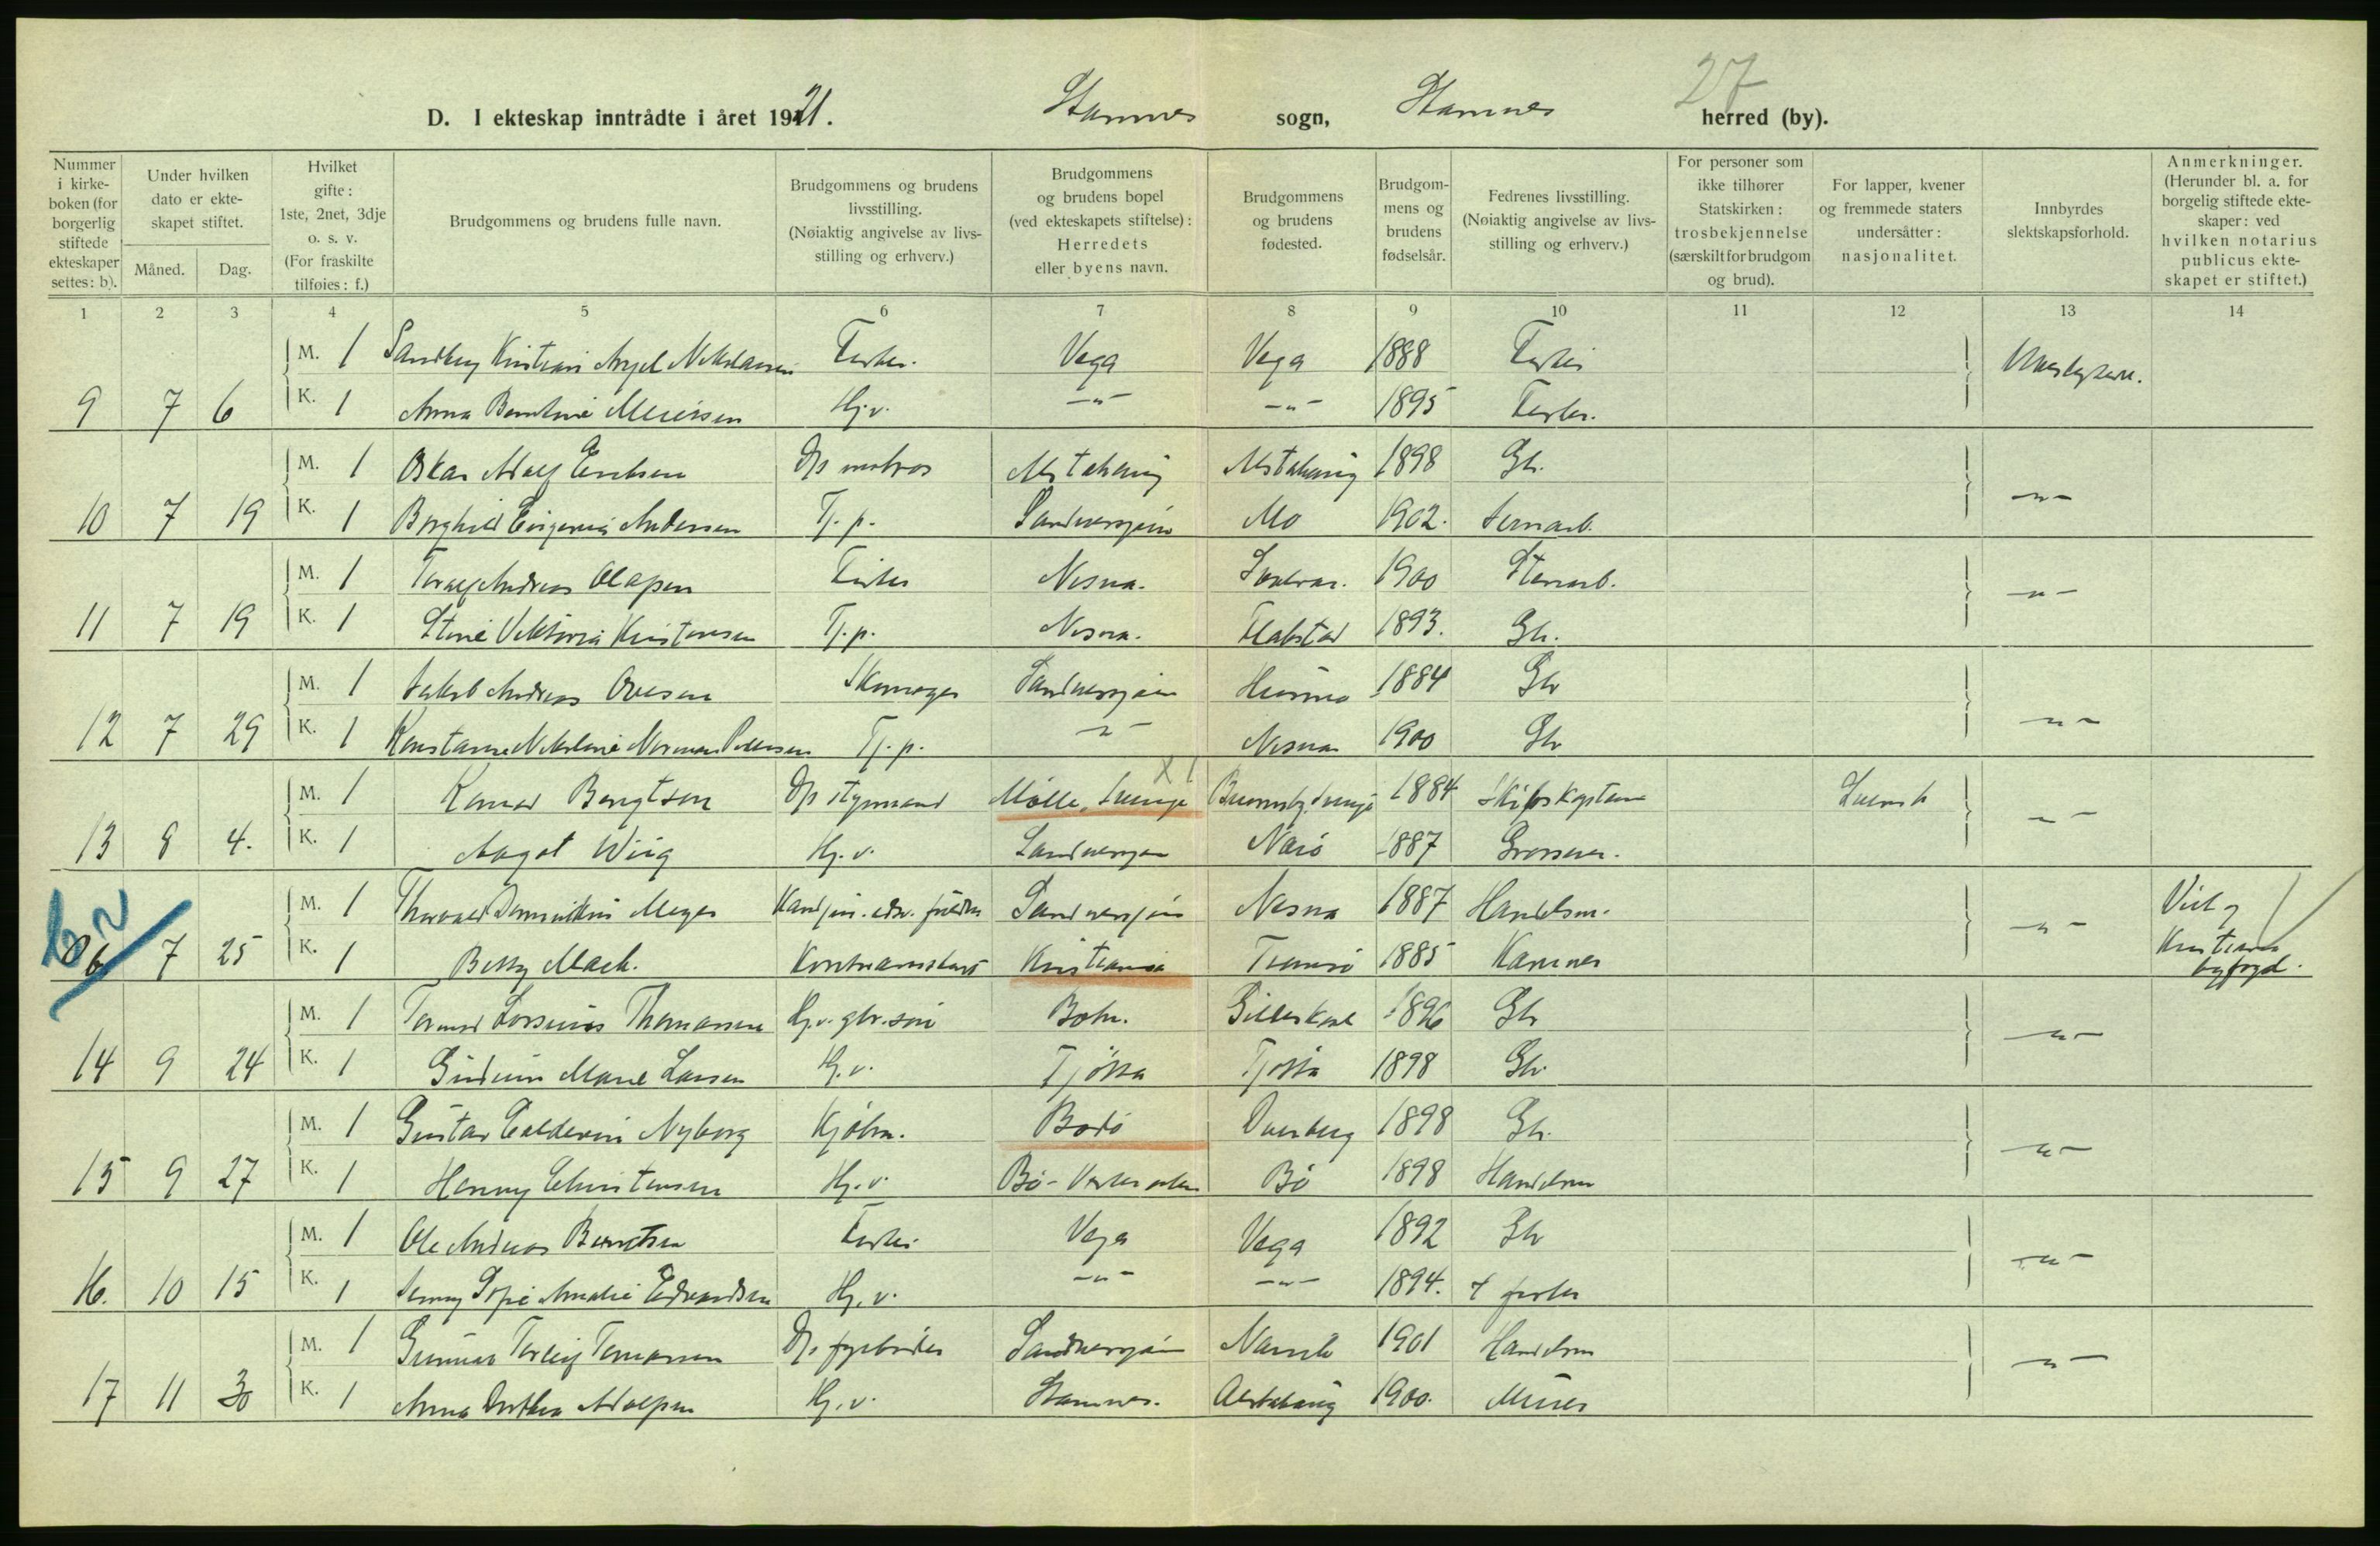 27
D. I ekteskap inntrådte i året 1921. Stamnes sogn, Stamnes herred (by).
Nummer i kirke-boken (for borgerlig stiftede ekteskaper settes: b).
Under hvilken dato er ekte-skapet stiftet.
Måned. Dag.
Hvilket gifte: 1ste, 2net, 3dje o. s. v. (For fraskilte tilføies: f.)
Brudgommens og brudens fulle navn.
Brudgommens og brudens livsstilling. (Nøiaktig angivelse av livs-stilling og erhverv.)
Brudgommens og brudens bopel (ved ekteskapets stiftelse): Herredets eller byens navn.
Brudgommens og brudens fødested.
Brudgom-mens og brudens fødselsår.
Fedrenes livsstilling. (Nøiaktig angivelse av livs-stilling og erhverv.)
For personer som ikke tilhører Statskirken: trosbekjennelse (særskilt for brudgom og brud).
For lapper, kvener og fremmede staters undersåtter: nasjonalitet.
Innbyrdes slektskapsforhold.
Anmerkninger. (Herunder bl. a. for borgelig stiftede ekte-skaper: ved hvilken notarius publicus ekte-skapet er stiftet.)
1 2 3 4 5 6 7 8 9 10 11 12 13 14
M. 1 Sandberg Kristian Angel Nikolaisen Fisker. Vega Vega 1888 Fisker Ubeslektede.
9 7 6 K. 1 Anna Berntine Meiersen Hj.v. -"- -"- 1895 Fisker.
M. 1 Oskar Adolf Eriksen D/s matros Alstahaug Alstahaug 1898 Gb.
10 7 19 K. 1 Borghild Eugenia Andersen Tj. p. Sandnessjøen Mo 1902. Jernarb. -"-
M. 1 Toralf Andreas Olapsen Fisker Nesna. 1900 Stenarb.
11 7 19 K. 1 Stine Viktoria Kristensen Tj. p. Nesna. Flakstad 1893. Gb. -"-
M. 1 Jakob Andreas Ovesen Skomager Sandnessjøen 1884 Gb
12 7 29 K. 1 Konstanse Nikoline Norman Pettersen Tj. p. -"- Nesna 1900 Gb -"-
X 1
M. 1 Konrad Bengtson D/s styrmand Mölle, Sverige Brunnby, Sverige 1884 Skibskaptein Svensk
13 8 4. K. 1 Aagot Wiig Hj. v. Sandnessjøen Nærø 1887 Grosserer. -"-
b 2
M. 1 Thorvald Meyer Sandnessjøen Nesna 1887 Handelsm. Vict
7 25 K. 1 Betsy Mack. Kristiania Tromsø 1885 -"- Kristiania byfogd.
M. 1 Tormod Lorsenius Thomassen Hj. v. gbr. søn Bodin. Gilleskaal 1896 Gb
14 9 24 K. 1 Gudrun Marie Larsen Hj. v. Tjøtta Tjøtta 1898 Gb. -"-
M. 1 Gustav Nyborg Kjøbm. Bodø Dverberg 1898 Gb.
15 9 27 K. 1 Henny Christensen Hj. v. Bø - Vesteraalen Bø 1898 Handelsm -"-
M. 1 Ole Andreas Berntsen Fisker Vega Vega 1892 Gb
16. 10 15 K. 1 Jenny Sofie Amalie Edvardsen Hj. v. -"- -"- 1894. + fisker -"-
M. 1 Gunnar Torleif Tomassen D/s fyrbøder Sandnessjøen 1901 Handelsm
17 11 30 K. 1 Anna Dorthea Adolfsen Hj. v. Stamnes. Alstahaug 1900. Murer -"-